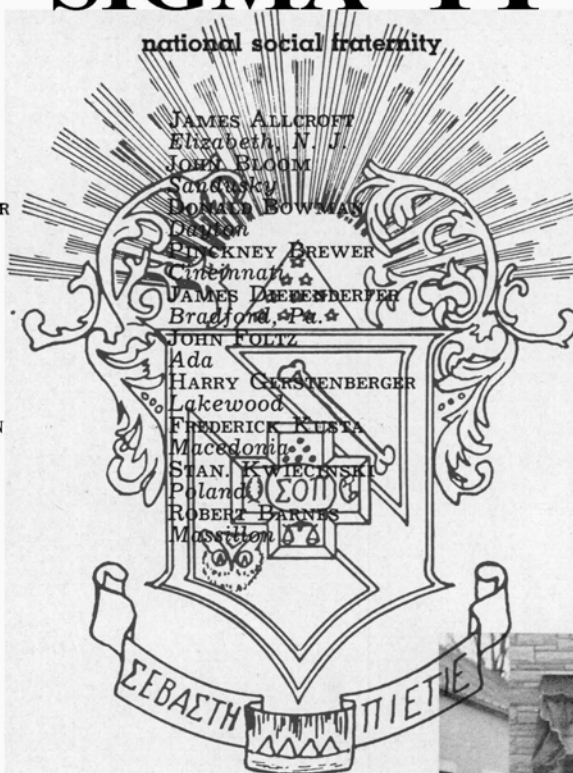 national social fraternity
JAMES ALLCROFT
Elizabeth, N. J.
JOHN BLOOM
Sandusky
DONALD BOWMAN
Dayton
PINCKNEY BREWER
Cincinnati
JAMES DIEFENDERFER
Bradford, Pa.
JOHN FOLTZ
Ada
HARRY GERSTENBERGER
Lakewood
FREDERICK KUSTA
Macedonia
STAN. KWIECINSKI
Poland
ΣΟΠ
ROBERT BARNES
Massillon
ΣΕΒΑΣΤΗ ΠΙΕΤΙΕ